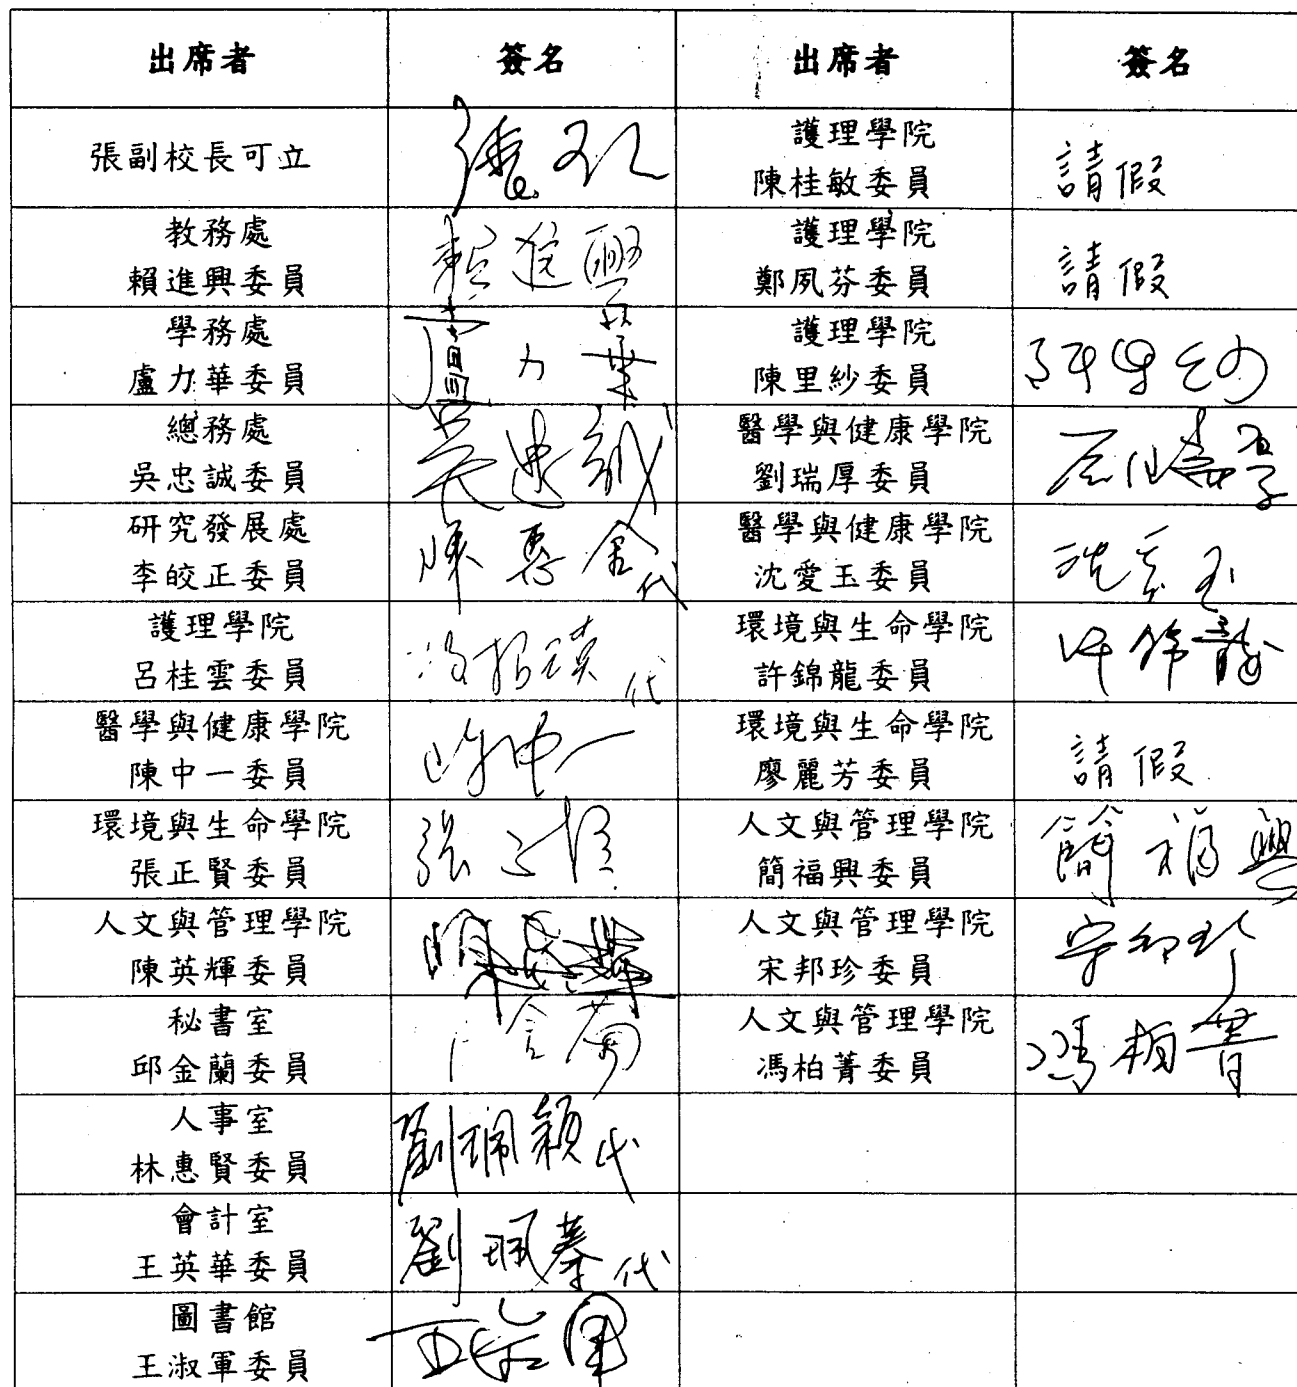 出席者 簽名 出席者 簽名
張副校長可立
護理學院
陳桂敏委員 請假
教務處
賴進興委員 賴進興
護理學院
鄭夙芬委員 請假
學務處
盧力華委員 盧力華
護理學院
陳里紗委員
總務處
吳忠誠委員 吳忠誠
醫學與健康學院
劉瑞厚委員
研究發展處
李皎正委員 陳惠金代
醫學與健康學院
沈愛玉委員 沈愛玉
護理學院
呂桂雲委員 代
環境與生命學院
許錦龍委員 許錦龍
醫學與健康學院
陳中一委員 陳中一
環境與生命學院
廖麗芳委員 請假
環境與生命學院
張正賢委員 張正賢
人文與管理學院
簡福興委員 簡福興
人文與管理學院
陳英輝委員
人文與管理學院
宋邦珍委員 宋邦珍
秘書室
邱金蘭委員
人文與管理學院
馮柏菁委員 馮柏菁
人事室
林惠賢委員 劉珮穎代
會計室
王英華委員 劉珮蓁代
圖書館
王淑軍委員